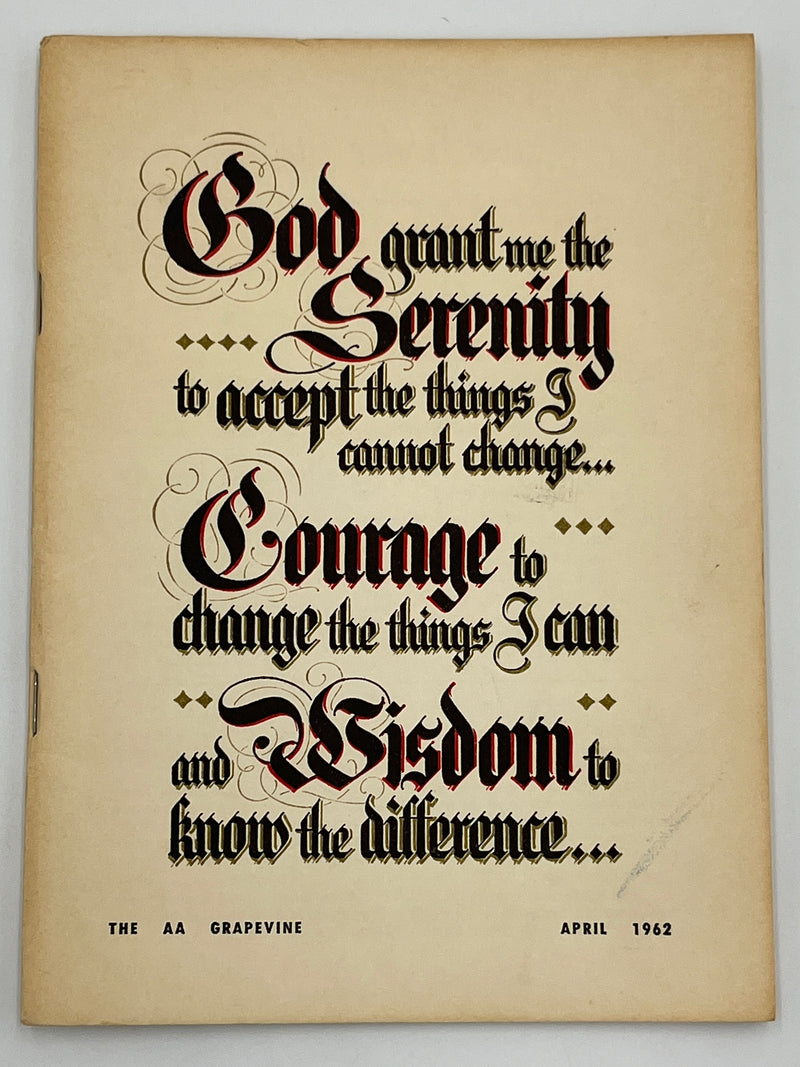 God grant me the
Serenity
to accept the things I
cannot change...
Courage to
change the things I can
and Wisdom to
know the difference...
THE AA GRAPEVINE APRIL 1962